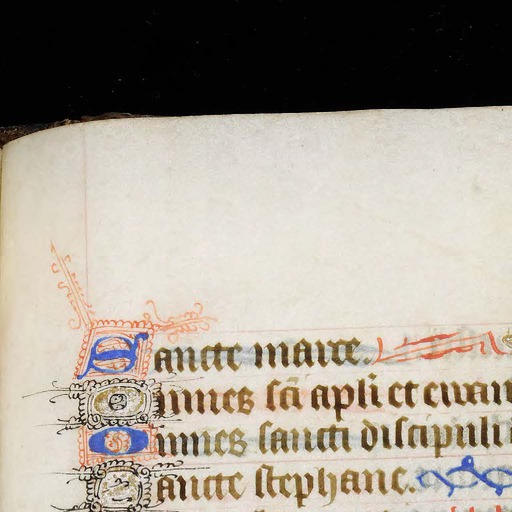 Sancte marce.
Omnes sc̄i apl̄i et euuan
Omnes sancti discipuli
Sancte stephane.